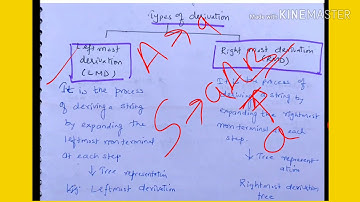 Types of derivation
Made with KINEMASTER
Left most
derivation
(LMD)
Right most derivation
(RMD)
It is the process
of deriving a string
by expanding the
leftmost non terminal
at each step
↓ Tree representation
Leftmost derivation
It is the process of
deriving a string by
expanding the rightmost
non terminal at each
step.
↓ Tree represent
ation
Rightmost derivation
tree
A → a
S → aAB